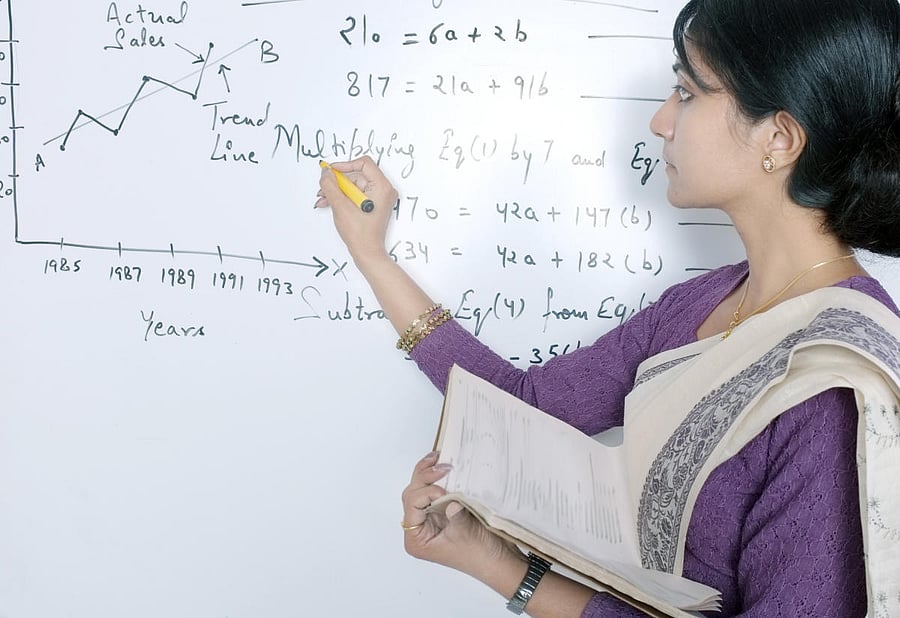 Actual
Sales
B
Trend
Line
A
1985 1987 1989 1991 1993
X
Years
210 = 6a + 2b
817 = 21a + 91b
Multiplying Eq(1) by 7 and Eq
470 = 42a + 147(b)
634 = 42a + 182(b)
Eq(4) from Eq(
- 35(b